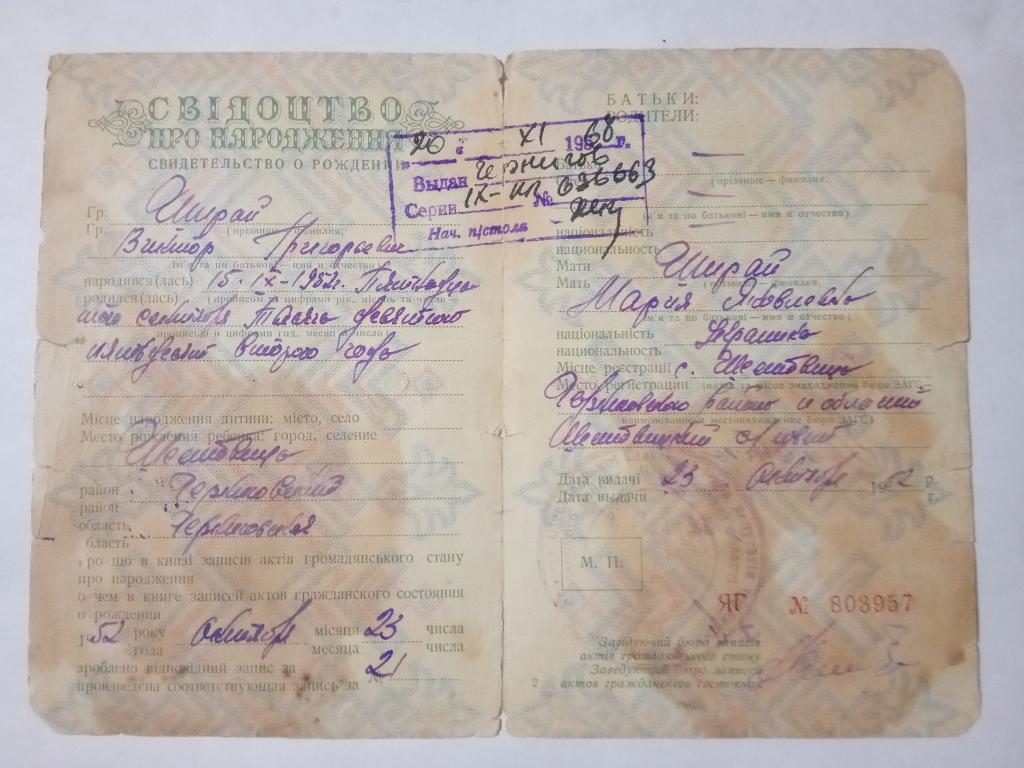 СВІДОЦТВО
ПРО НАРОДЖЕННЯ
СВИДЕТЕЛЬСТВО О РОЖДЕНИИ
Гр. Ширай
Гр. (прізвище — фамилия,
Виктор Григорьевич
ім'я та по батькові — имя и отчество)
народився(лась) 15-IX-1952г. Пятнадца
родился(лась) (прописом і цифрами рік, місяць та число
того сентября Тысяча девятьсот
прописью и цифрами год, месяц и число)
пятьдесят второго года
Місце народження дитини: місто, село
Место рождения ребенка: город, селение
Шестовица
район Черниговский
район
область Черниговская
область
про що в книзі записів актів громадянського стану
про народження
о чем в книге записей актов гражданского состояния
о рождении
1952 року октября місяця 23 числа
года месяца числа
зроблено відповідний запис за № 21
произведена соответствующая запись за
20 XI 1968 г.
Выдан Чернигов
Серии IX-ИЛ № 636663
Нач. п/стола
БАТЬКИ:
РОДИТЕЛИ:
(прізвище — фамилия,
ім'я та по батькові — имя и отчество)
національність
национальность
Мати Ширай
Мать (прізвище — фамилия,
Мария Яковлевна
ім'я та по батькові — имя и отчество)
національність Украинка
национальность
Місце реєстрації с. Шестовица
Место регистрации (назва та місце знаходження бюро ЗАГС
Черниговского района и области
наименование и местонахождение бюро ЗАГС)
Шестовицкий с/совет
Дата видачі 23 октября 1952 р.
Дата выдачи г.
М. П.
ЯГ № 803957
Завідуючий бюро записів
актів громадянського стану
Заведующий бюро записей
актов гражданского состояния
2